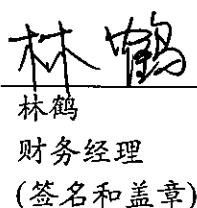 林鹤
林鹤
财务经理
(签名和盖章)